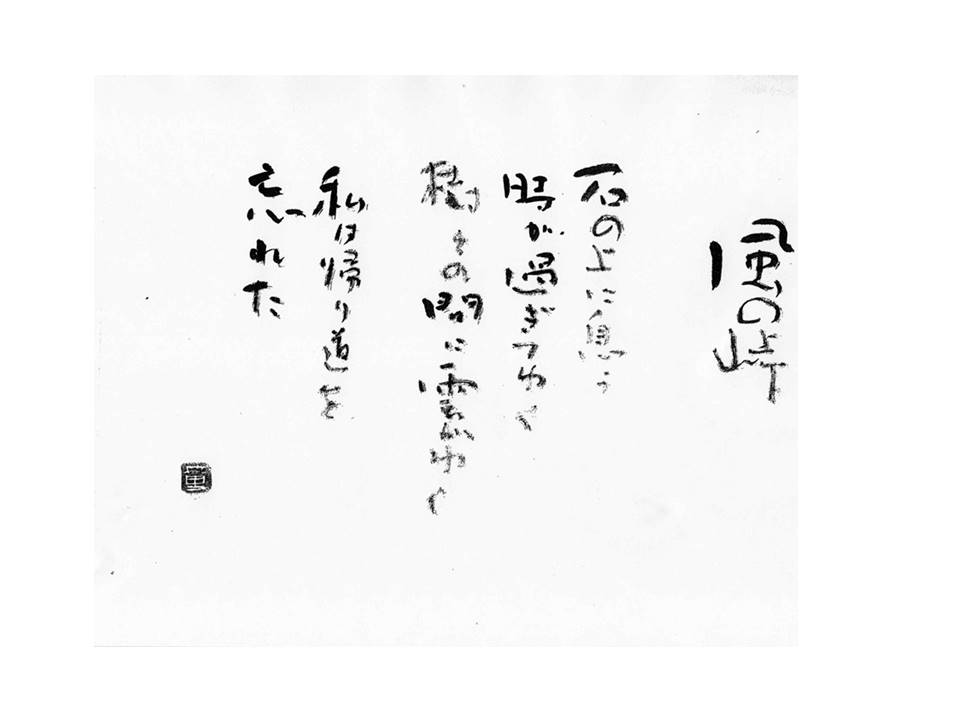 風の峠
石の上に息う
時が過ぎてゆく
樹々の間に雲がゆく
私は帰り道を
忘れた